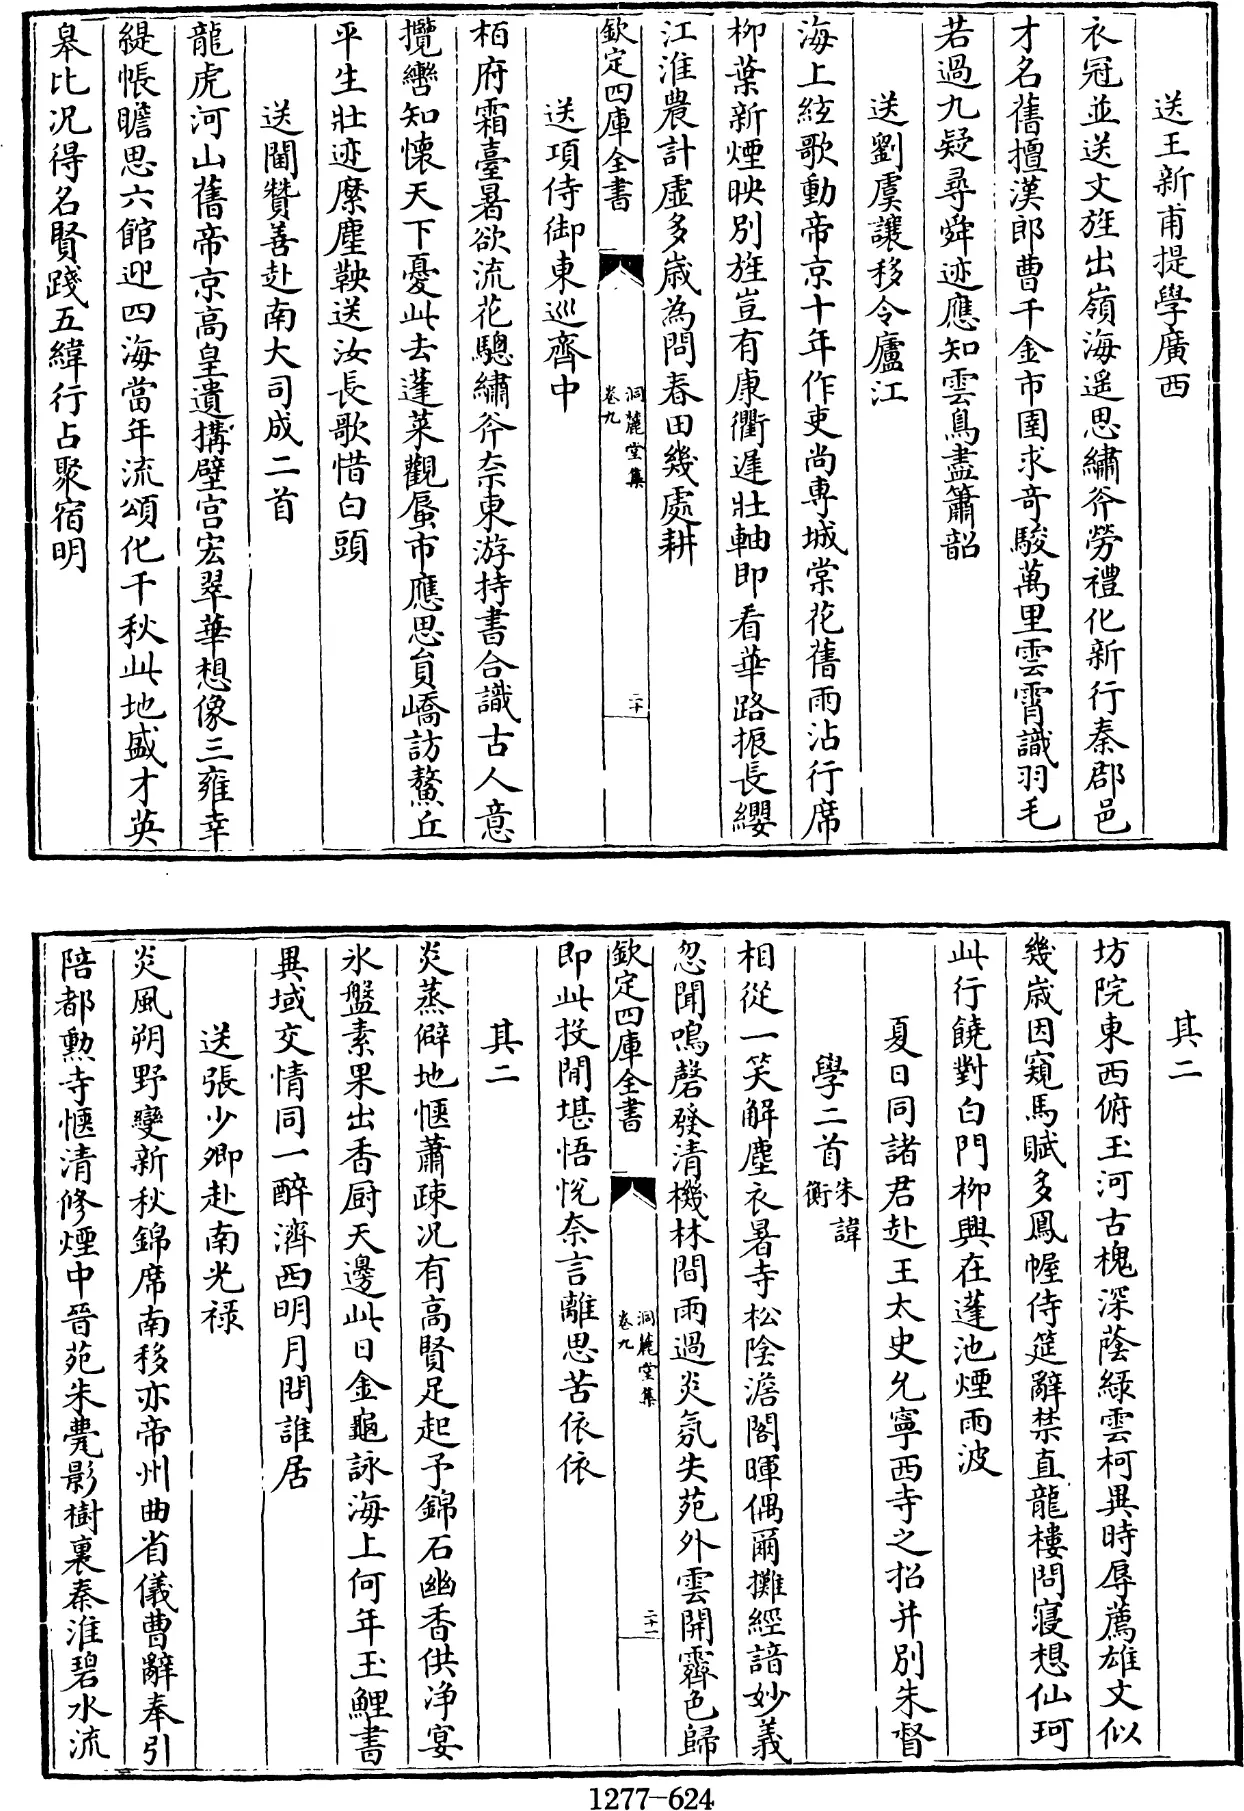 送王新甫提學廣西
衣冠並送文旌出嶺海遥思繡斧勞禮化新行秦郡邑
才名舊擅漢郎曹千金市圉求奇駿萬里雲霄識羽毛
若過九疑尋舜迹應知雲鳥盡簫韶
送劉虞讓移令廬江
海上絃歌動帝京十年作吏尚専城棠花舊雨沾行席
柳葉新煙映別旌豈有康衢遲壯軸即看華路振長纓
江淮農計虛多歲為問春田幾處耕
欽定四庫全書
洞麓堂集
卷九
二十
送項侍御東巡齊中
栢府霜臺暑欲流花驄繡斧奈東游持書合識古人意
攬轡知懐天下憂此去蓬萊觀蜃市應思員嶠訪鰲丘
平生壯迹縻塵鞅送汝長歌惜白頭
送閫贊善赴南大司成二首
龍虎河山舊帝京高皇遺搆壁宫宏翠華想像三雍幸
緹帳瞻思六館迎四海當年流頌化千秋此地盛才英
皋比况得名賢踐五緯行占聚宿明
其二
坊院東西俯玉河古槐深蔭緑雲柯異時辱薦雄文似
幾歲因窺馬賦多鳳幄侍筵辭禁直龍樓問寢想仙珂
此行饒對白門柳興在蓬池煙雨波
夏日同諸君赴王太史允寧西寺之招并別朱督
學二首朱諱衡
相從一笑解塵衣暑寺松陰澹閣暉偶爾攤經諳妙義
忽聞鳴磬發清機林間雨過炎氛失苑外雲開霽色歸
欽定四庫全書
洞麓堂集
卷九
二十一
即此投閒堪悟恱奈言離思苦依依
其二
炎蒸僻地愜蕭疎况有高賢足起予錦石幽香供浄宴
氷盤素果出香厨天邊此日金龜詠海上何年玉鯉書
異域交情同一醉濟西明月問誰居
送張少卿赴南光禄
炎風朔野變新秋錦席南移亦帝州曲省儀曹辭奉引
陪都勲寺愜清修煙中晉苑朱甍影樹裏秦淮碧水流
1277-624